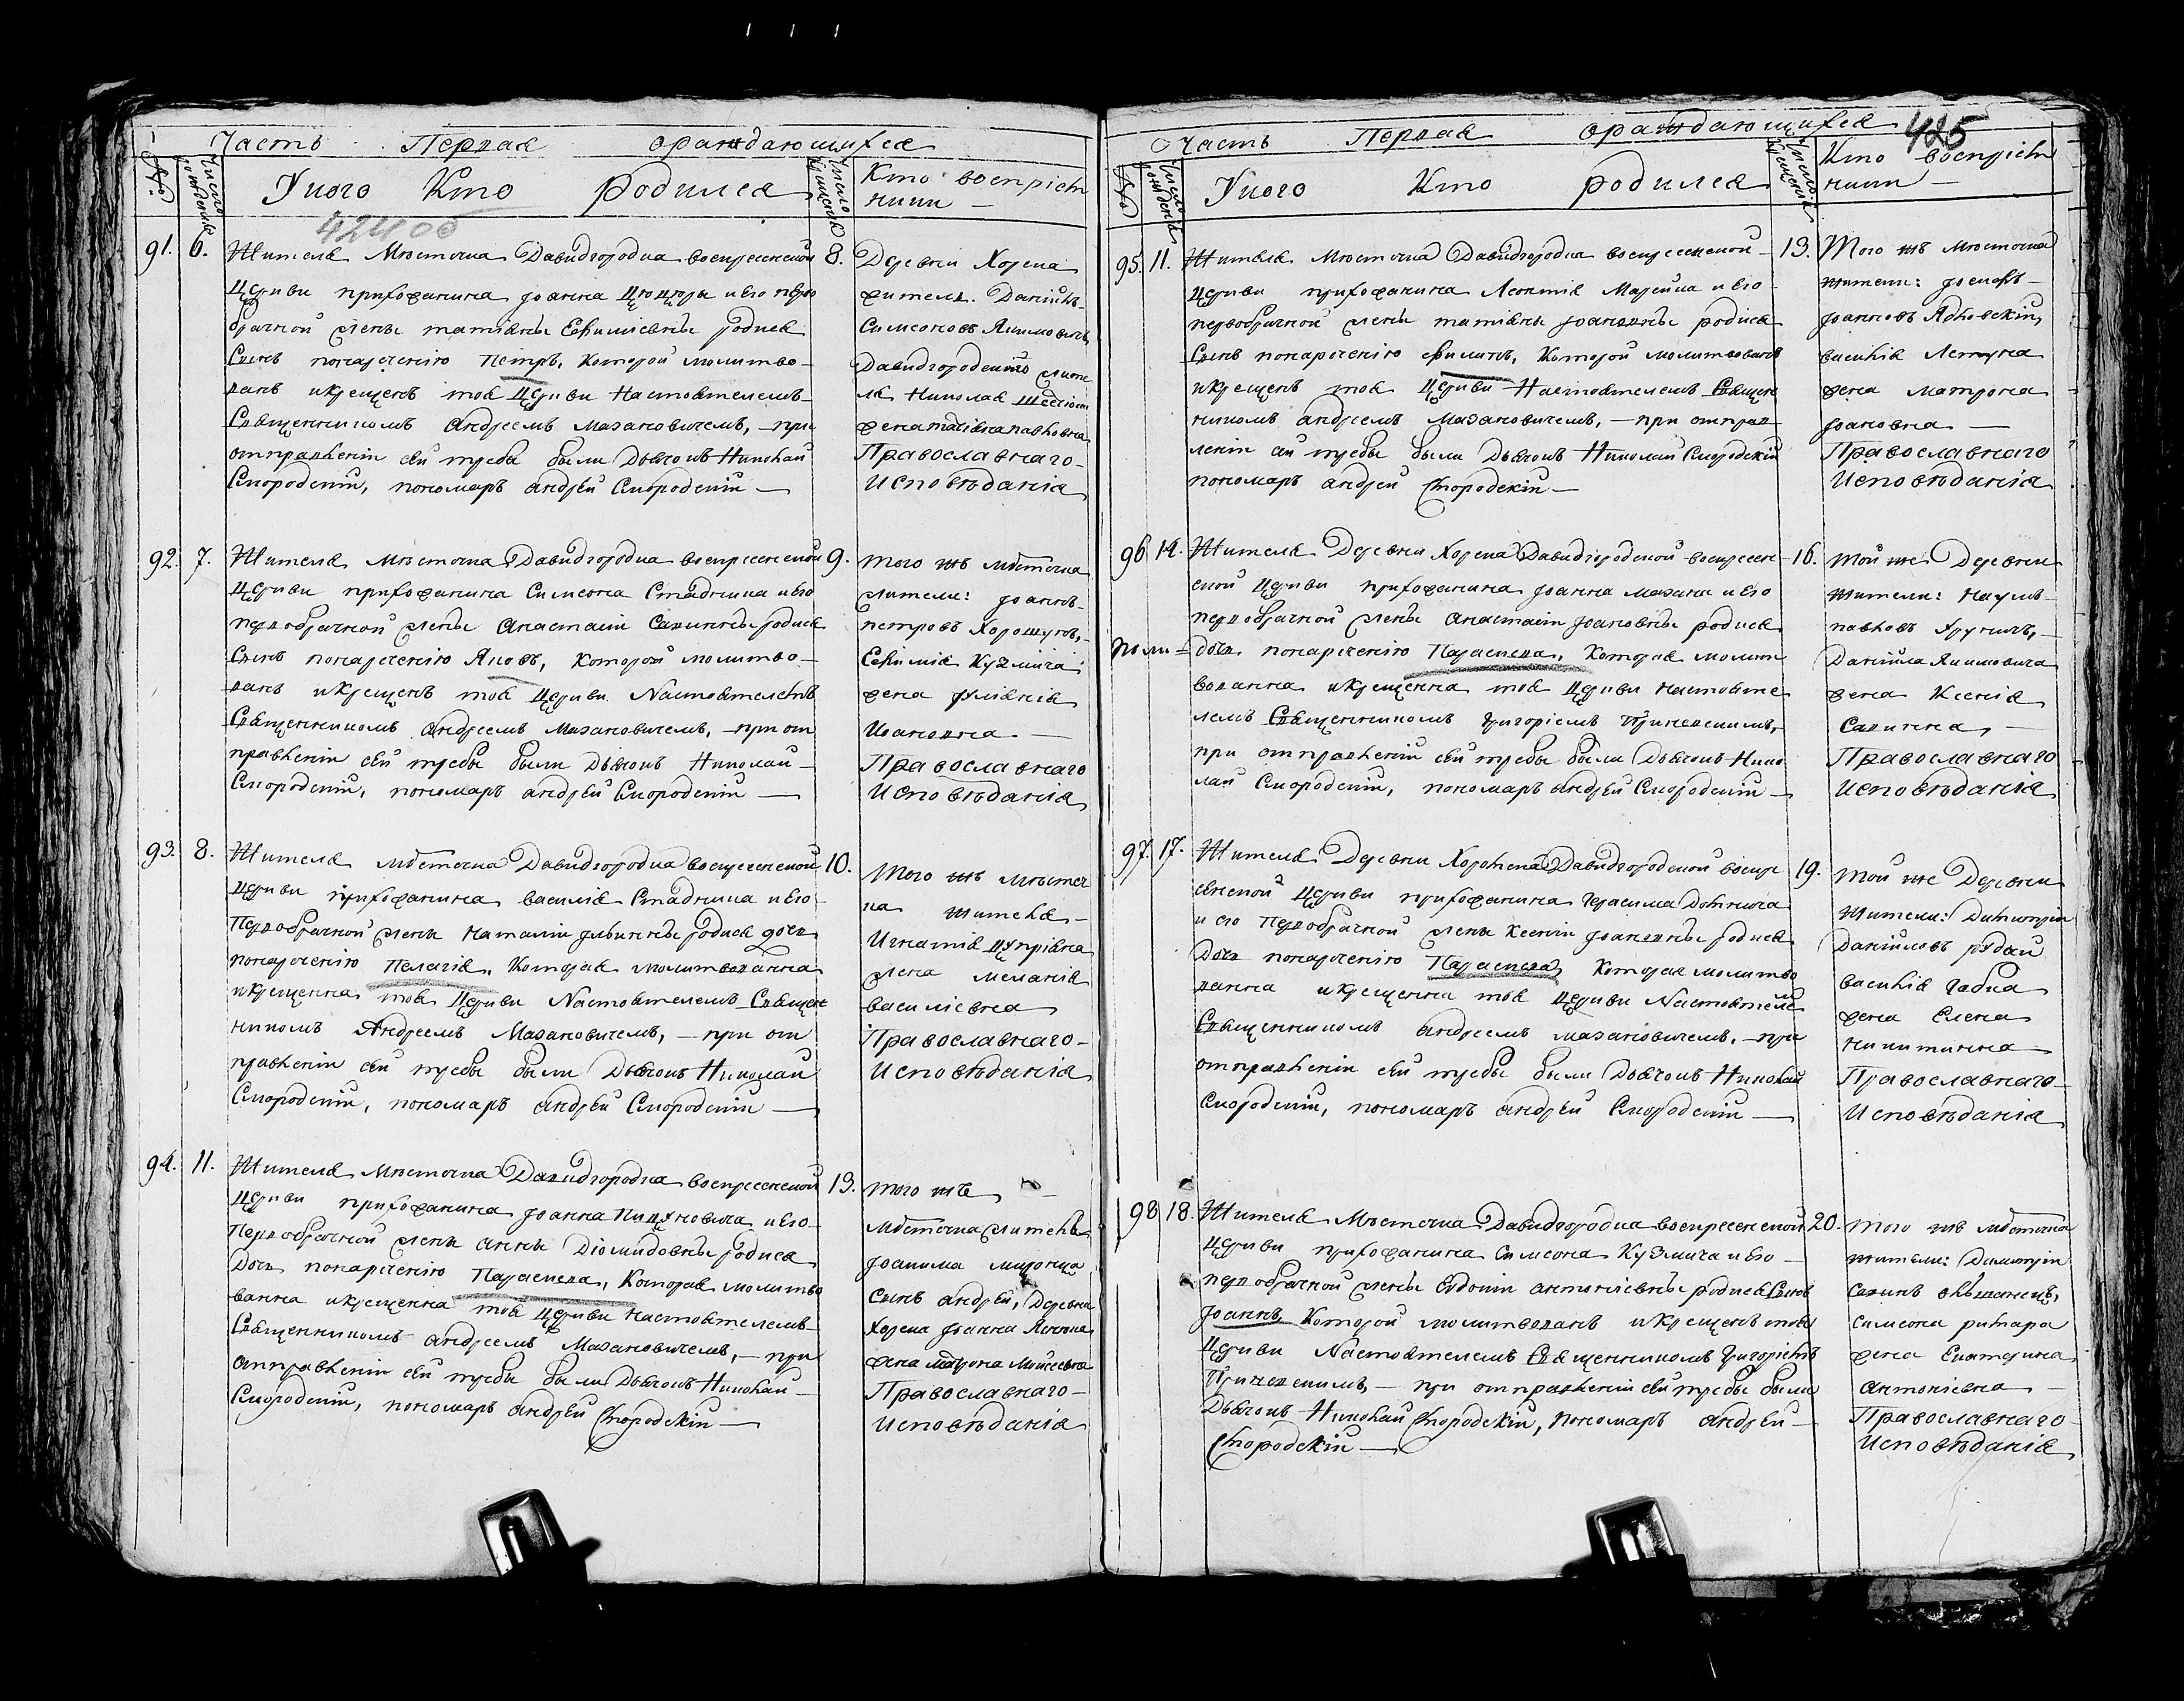 Часть Первая ораждающихся
№ Число рожденія У кого Кто родился Число крещенія Кто воспріем
ники —
424 об
91. 6. Жителя Мѣстечка Давидгородка воскресенской 8.
Церкви прихожанина Іоанна и его перво
брачной жены татіяны Евфиміевны родися
Сынъ понареченію Петръ, которой молитво-
ванъ икрещенъ тоя Церкви Настоятелемъ
Священникомъ Андреемъ Мазановичемъ, — при
отправленіи сей требы были Дьячокъ Николай
Скородскій, пономаръ андрей Скородскій —
Деревни Хорска
жители. Даніилъ
Симеоновъ Якимовичъ,
Давидгородского жите
ля Николая
жена татіяна павловна
Православнаго
Исповѣданія
92. 7. Жителя Мѣстечка Давидгородка воскресенской 9.
Церкви прихожанина Симеона Стаднича и его
первобрачной жены Анастасіи Саввины родися
Сынъ понареченію Яковъ, которой молитво-
ванъ икрещенъ тоя Церкви Настоятелемъ
Священникомъ Андреемъ Мазановичемъ, — при от
правленіи сей требы были Дьячокъ Николай
Скородскій, пономаръ андрей Скородскій —
того жъ мѣстечка
жители: Іоаннъ
петровъ Хорошунъ,
Евфимія Кузмича
жена Іуліянія
Иоановна —
Православнаго
Исповѣданія
93. 8. Жителя мѣстечка Давидгородка воскресенской 10.
Церкви прихожанина василія Стаднича и его
Первобрачной жены Наталіи родися дочь
понареченію Пелагія, Которая молитвованна
икрещенна тоя Церкви Настоятелемъ Священ
никомъ Андреемъ Мазановичемъ, — при от
правленіи сей требы были Дьячокъ Николай
Скородскій, пономаръ андрей Скородскій —
того жъ мѣстеч
ка жители
Игнатія
жена меланія
василіевна
Православнаго
Исповѣданія
94. 11. Жителя Мѣстечка Давидгородка воскресенской 13.
Церкви прихожанина Іоанна Пицуковича и его
Первобрачной жены анны Діомидовны родися
Дочь понареченію Параскева, Которая молитво
ванна икрещенна тоя Церкви Настоятелемъ
Священникомъ андреемъ Мазановичемъ, — при
отправленіи сей требы были Дьячокъ Николай
Скородскій, пономаръ андрей Скородскій —
того жъ
мѣстечка жители
Іоакима
сынъ андрей, Деревни
Хорска Іоанна
жена Матрона Моисеевна
Православнаго
Исповѣданія
425
Часть Первая ораждающихся
№ Число рожденія У кого Кто родился Число крещенія Кто воспріем
ники —
95. 11. Жителя Мѣстечка Давидгородка воскресенской 13.
Церкви прихожанина Леонтія Марейна и его
первобрачной жены татіяны Іоановны родися
Сынъ понареченію филипъ, Которой молитвованъ
икрещенъ тоя Церкви Настоятелемъ Священ
никомъ андреемъ Мазановичемъ, — при отправ
леніи сей требы были Дьячокъ Николай Скородскій
пономаръ андрей Скородскій —
Того жъ Мѣстечка
жители: Іосифъ
Іоанновъ
василія
жена матрона
Іоановна —
Православнаго
Исповѣданія
96 14. Жителя Деревни Хорска Давидгородской воскресен 16.
ской Церкви прихожанина Іоанна мазана и его
первобрачной жены Анастасіи Іоановны родися
дочь понареченію Параскева, Которая молит
вованна икрещенна тоя Церкви настояте
лемъ Священникомъ Григоріемъ
при отправленіи сей требы были Дьячокъ Нико
лай Скородскій, пономаръ андрей Скородскій —
Той же Деревни
жители: Наумъ
павловъ
Даніила Якимовича
жена Ксенія
Саввична —
Православнаго
Исповѣданія
97. 17. Жителя Деревни Давидгородской воскре 19.
сенской Церкви прихожанина Герасима
и его Первобрачной жены Ксеніи Іоановны родися
Дочь понареченію Параскева, Которая молитво
ванна икрещенна тоя Церкви Настоятелемъ
Священникомъ андреемъ мазановичемъ, — при
отправленіи сей требы были Дьячокъ Николай
Скородскій, пономаръ андрей Скородскій —
Той же Деревни
Жители: Димитрій
Даніиловъ рудай
василія
жена Елена
никитична —
Православнаго
Исповѣданія
98 18. Жителя Мѣстечка Давидгородка воскресенской 20.
Церкви прихожанина Симеона Кузмича и его
первобрачной жены Евдокіи антоніевны родися Сынъ
Іоаннъ, Которой молитвованъ икрещенъ тоя
Церкви Настоятелемъ Священникомъ Григоріемъ
— при отправленіи сей требы были
Дьячокъ Николай Скородскій, пономаръ андрей
Скородскій —
того жъ мѣстечка
жители: Димитрій
Саввинъ
симеона
жена Екатерина
антоніевна —
Православнаго
Исповѣданія